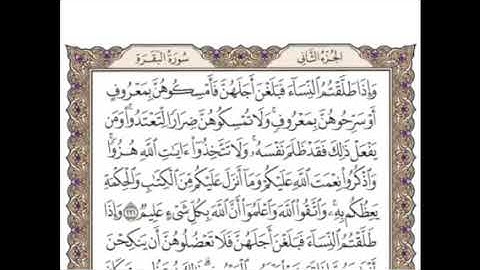 الجزء الثاني
سورة البقرة
وَإِذَا طَلَّقْتُمُ ٱلنِّسَآءَ فَبَلَغْنَ أَجَلَهُنَّ فَأَمْسِكُوهُنَّ بِمَعْرُوفٍ
أَوْ سَرِّحُوهُنَّ بِمَعْرُوفٍ ۚ وَلَا تُمْسِكُوهُنَّ ضِرَارًا لِّتَعْتَدُوا۟ ۚ وَمَن
يَفْعَلْ ذَٰلِكَ فَقَدْ ظَلَمَ نَفْسَهُۥ ۚ وَلَا تَتَّخِذُوٓا۟ ءَايَٰتِ ٱللَّهِ هُزُوًا ۚ
وَٱذْكُرُوا۟ نِعْمَتَ ٱللَّهِ عَلَيْكُمْ وَمَآ أَنزَلَ عَلَيْكُم مِّنَ ٱلْكِتَٰبِ وَٱلْحِكْمَةِ
يَعِظُكُم بِهِۦ ۚ وَٱتَّقُوا۟ ٱللَّهَ وَٱعْلَمُوٓا۟ أَنَّ ٱللَّهَ بِكُلِّ شَىْءٍ عَلِيمٌ ٢٣١ وَإِذَا
طَلَّقْتُمُ ٱلنِّسَآءَ فَبَلَغْنَ أَجَلَهُنَّ فَلَا تَعْضُلُوهُنَّ أَن يَنكِحْنَ